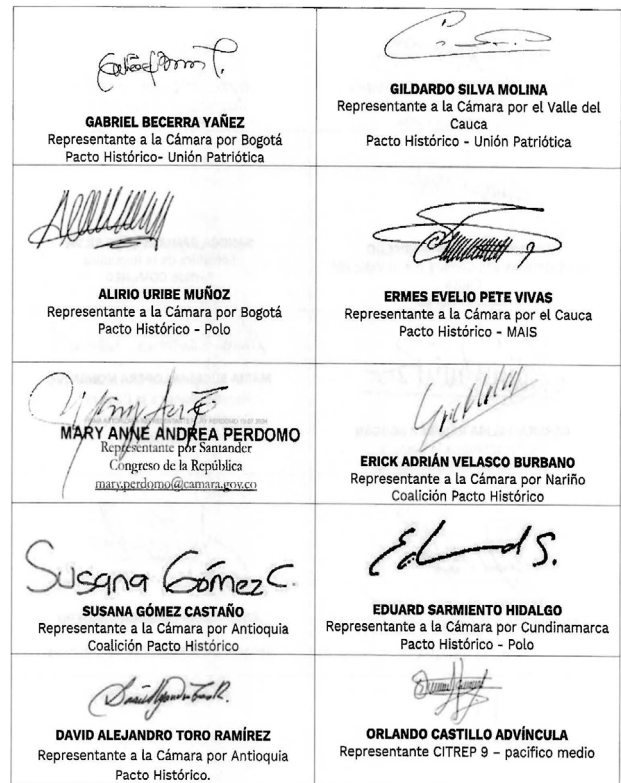 GABRIEL BECERRA YAÑEZ
Representante a la Cámara por Bogotá
Pacto Histórico- Unión Patriótica
GILDARDO SILVA MOLINA
Representante a la Cámara por el Valle del
Cauca
Pacto Histórico - Unión Patriótica
ALIRIO URIBE MUÑOZ
Representante a la Cámara por Bogotá
Pacto Histórico - Polo
ERMES EVELIO PETE VIVAS
Representante a la Cámara por el Cauca
Pacto Histórico - MAIS
MARY ANNE ANDREA PERDOMO
Representante por Santander
Congreso de la República
mary.perdomo@camara.gov.co
ERICK ADRIÁN VELASCO BURBANO
Representante a la Cámara por Nariño
Coalición Pacto Histórico
Susana Gómez C.
SUSANA GÓMEZ CASTAÑO
Representante a la Cámara por Antioquia
Coalición Pacto Histórico
EDUARD SARMIENTO HIDALGO
Representante a la Cámara por Cundinamarca
Pacto Histórico - Polo
DAVID ALEJANDRO TORO RAMÍREZ
Representante a la Cámara por Antioquia
Pacto Histórico.
ORLANDO CASTILLO ADVÍNCULA
Representante CITREP 9 – pacifico medio